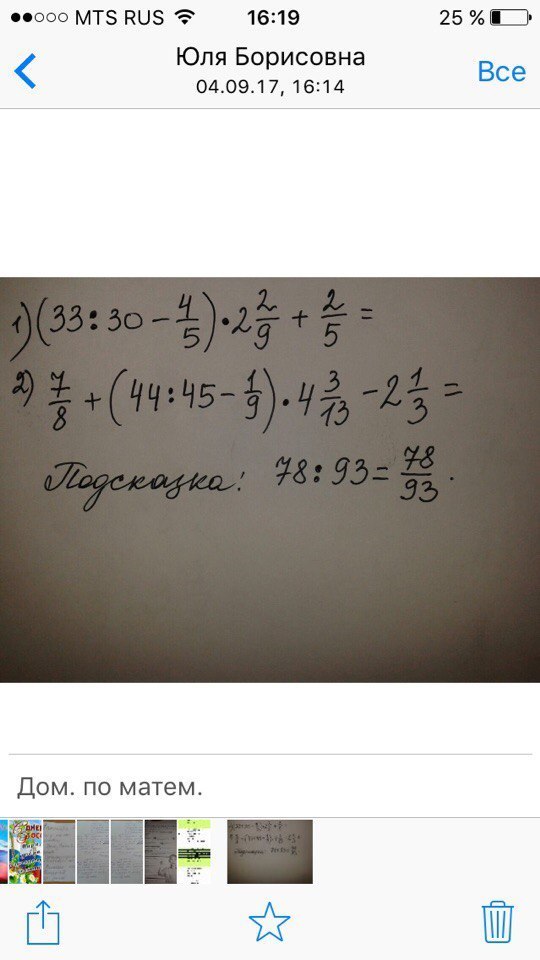 MTS RUS 16:19 25 %
Юля Борисовна
04.09.17, 16:14
Все
1) (33:30 - 4/5) · 2 2/9 + 2/5 =
2) 7/8 + (44:45 - 1/9) · 4 3/13 - 2 1/3 =
Подсказка: 78:93 = 78/93.
Дом. по матем.